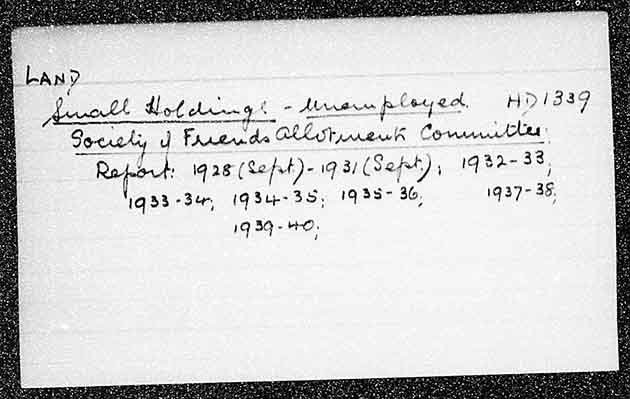 LAND
Small Holdings - Unemployed. HD1339
Society of Friends Allotment Committee.
Report: 1928 (Sept.) - 1931 (Sept.); 1932-33;
1933-34; 1934-35; 1935-36; 1937-38;
1939-40;